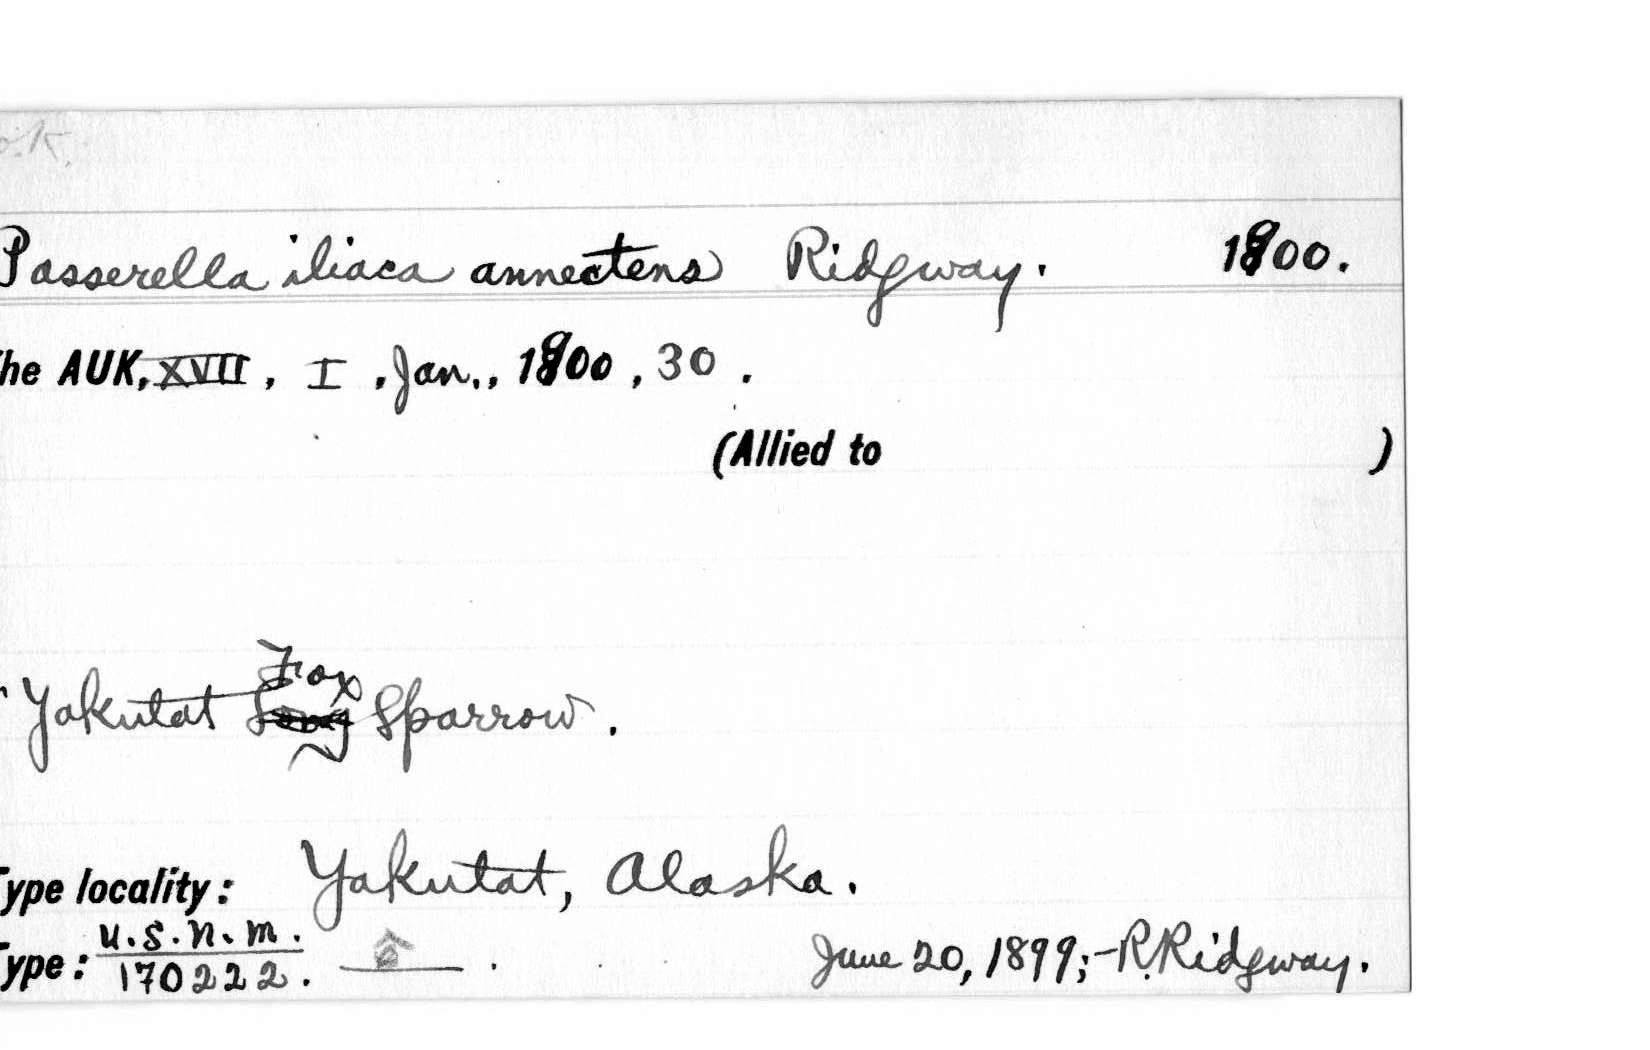 o.K.
Passerella iliaca annectens Ridgway. 1900.
he AUK, XVII, I, Jan., 1900, 30.
(Allied to )
Fox
"Yakutat Song Sparrow.
Type locality: Yakutat, Alaska.
U.S.N.M.
Type: 170222. June 20, 1899;-R.Ridgway.